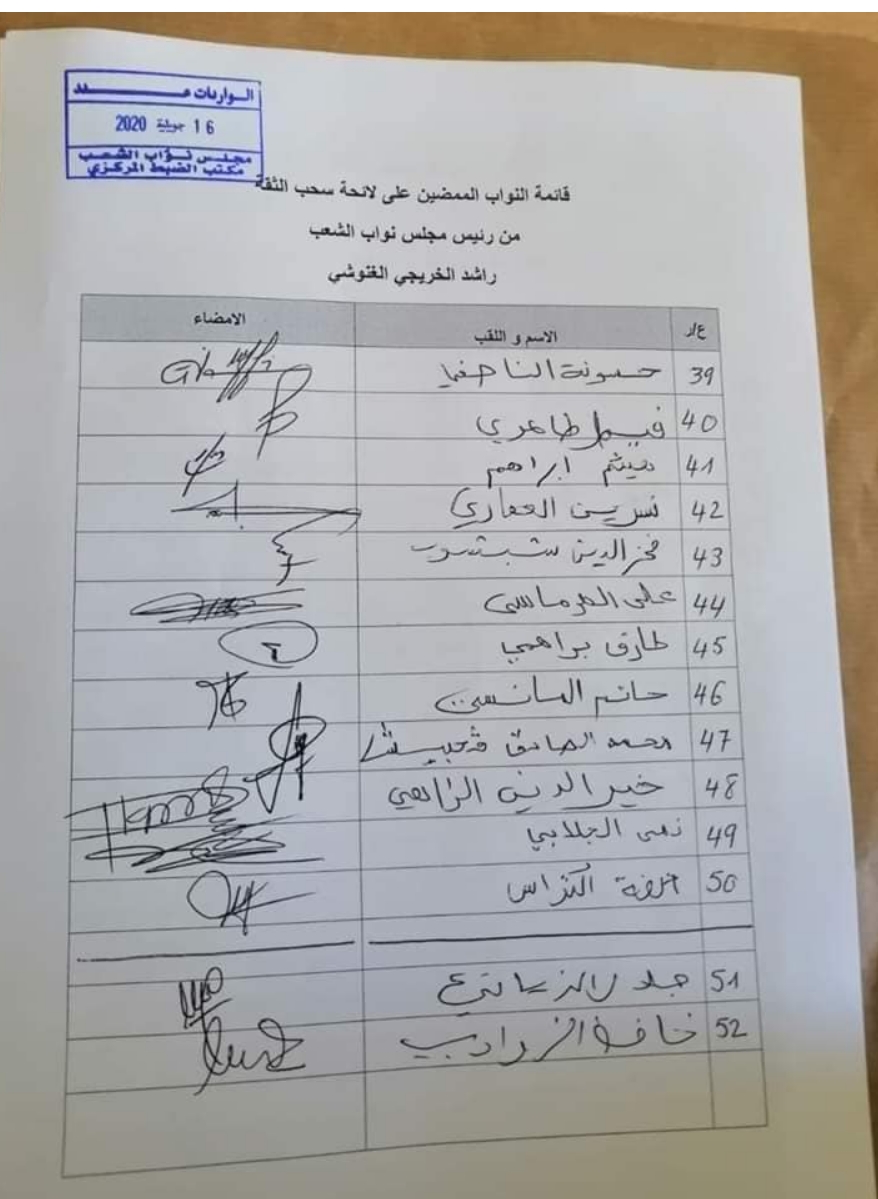 الواردات عدد
16 جويلية 2020
مجلس نواب الشعب
مكتب الضبط المركزي
قائمة النواب الممضين على لائحة سحب الثقة
من رئيس مجلس نواب الشعب
راشد الخريجي الغنوشي
ع/ر الاسم و اللقب الامضاء
39 حسونة الناصفي
40 فيصل طاهري
41 هيثم ابراهم
42 نسرين العماري
43 فخر الدين شبشوب
44 علي الهرماسي
45 طارق براهمي
46 حاتم المانسي
47 محمد الصادق قحبيش
48 خير الدين الزاهي
49 نهى
50 الفة التراس
51 جلال الزياتي
52 الزوادي